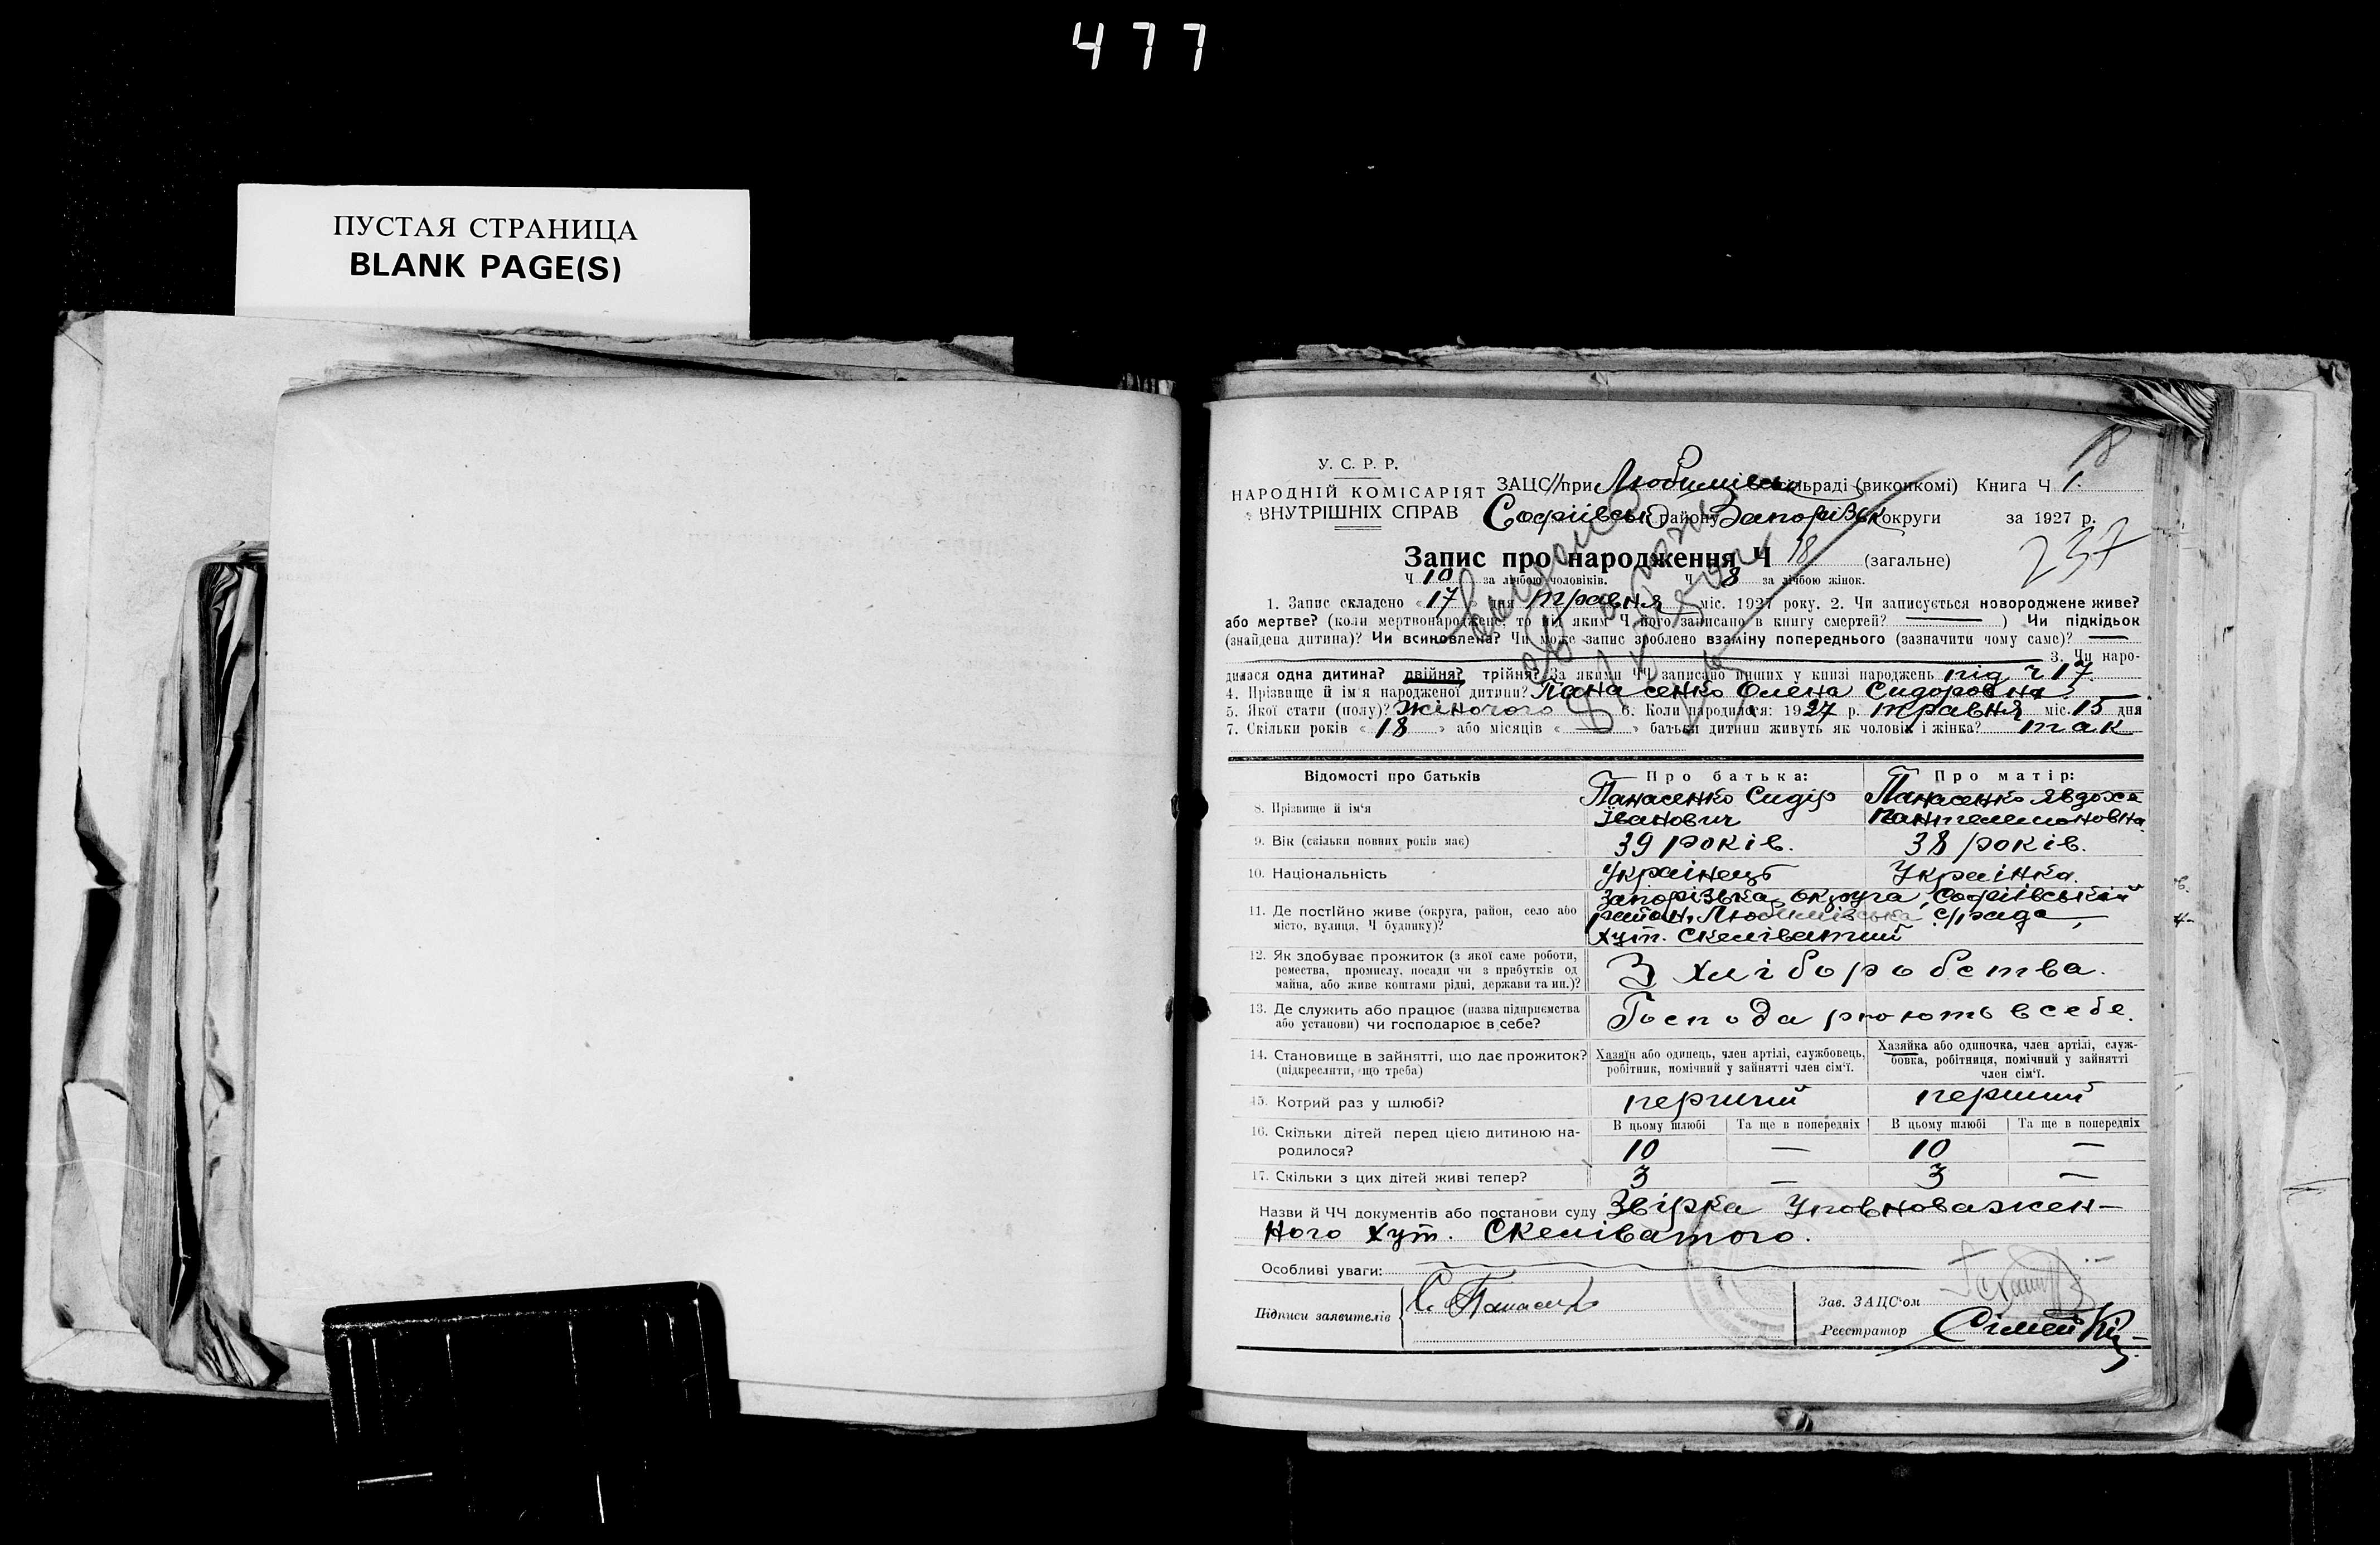 477
ПУСТАЯ СТРАНИЦА
BLANK PAGE(S)
18
У. С. Р. Р.
НАРОДНІЙ КОМІСАРІЯТ
ВНУТРІШНІХ СПРАВ
ЗАЦС при Любимівськ сільраді (виконкомі) Книга Ч 1.
Софіївськ району Запорізьк округи за 1927 р.
237
Запис про народження Ч 18 (загальне)
Ч 10 за лічбою чоловіків. Ч 8 за лічбою жінок.
1. Запис складено «17» дня травня міс. 1927 року. 2. Чи записується новороджене живе?
або мертве? (коли мертвонароджене, то під яким Ч його записано в книгу смертей? — ) Чи підкідьок
(знайдена дитина)? Чи всиновлена? Чи може запис зроблено взаміну попереднього (зазначити чому саме)? —
3. Чи наро-
дилася одна дитина? двійня? трійня? За якими ЧЧ записано инших у книзі народжень під ч 17
4. Прізвище й ім'я народженої дитини? Панасенко Олена Сидоровна
5. Якої стати (полу)? Жіночого 6. Коли народилася: 1927 р. травня міс. 15 дня
7. Скільки років «18» або місяців « — » батьки дитини живуть як чоловік і жінка? так
Відомості про батьків Про батька: Про матір:
8. Прізвище й ім'я Панасенко Сидір Іванович Панасенко Явдоха Пантелемоновна
9. Вік (скільки повних років має) 39 років. 38 років.
10. Національність Українець Українка.
11. Де постійно живе (округа, район, село або місто, вулиця, Ч будинку)? Запорізька округа, Софіївський
район, Любимівська с/рада,
хут. Скеліватий
12. Як здобуває прожиток (з якої саме роботи, ремества, промислу, посади чи з прибутків од майна, або живе коштами рідні, держави та ин.)? З хліборобства.
13. Де служить або працює (назва підприємства або установи) чи господарює в себе? Господарюють в себе.
14. Становище в зайнятті, що дає прожиток? (підкреслити, що треба) Хазяїн або одинець, член артілі, службовець, робітник, помічний у зайнятті член сім'ї. Хазяйка або одиночка, член артілі, служ-
бовка, робітниця, помічний у зайнятті
член сім'ї.
15. Котрий раз у шлюбі? перший перший
16. Скільки дітей перед цією дитиною на-
родилося? В цьому шлюбі Та ще в попередніх В цьому шлюбі Та ще в попередніх
10 — 10 —
17. Скільки з цих дітей живі тепер? 3 — 3 —
Назви й ЧЧ документів або постанови суду Звірка Уповноважен-
ного хут. Скеліватого.
Особливі уваги:
Підписи заявителів С. Панасенко
Зав. ЗАЦС'ом
Реєстратор